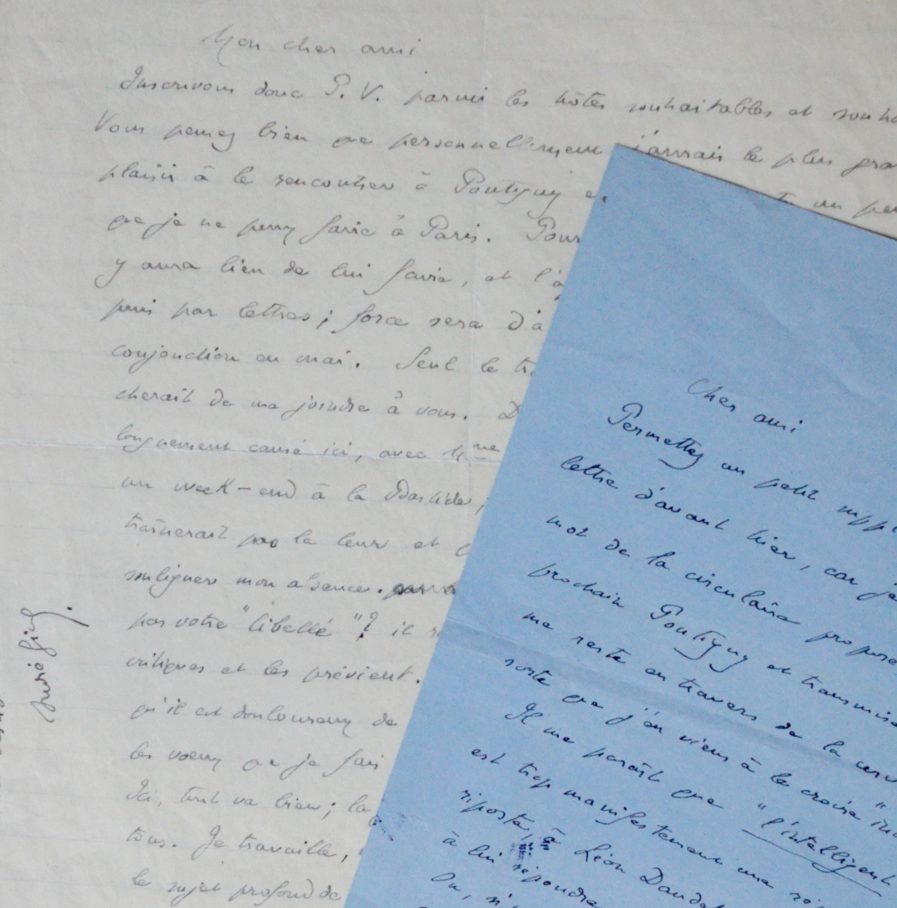 Mon cher ami
Inscrivons donc P. V. parmi les hôtes souhaitables et souha
Vous pensez bien que personnellement j'aurais le plus gra
plaisir à le rencontrer à Pontigny e un peu
que je ne puis faire à Paris. Pour
y aura lieu de lui faire, et l'a
puis par lettres; force sera d'a
conjonction en mai. Seul le tr
cherait de me joindre à vous. D
longuement causé ici, avec Mme
un week-end à la Bastide,
traînerait pas la leur et
souligner mon absence.
pas votre "libellé"? il
critiques et les prévient.
qu'il est douloureux de
les voeux que je fais
Ici, tout va bien; la
tous. Je travaille,
le sujet profond de
André Gide.
Cher ami
Permettez un petit suppl
lettre d'avant hier, car je
mot de la circulaire propose
prochain Pontigny et transmise
me reste en travers de la cerv
sorte que j'en viens à le croire "in
Il me paraît que "l'intelligent
est trop manifestement une ré
riposte à Léon Daudet
à lui répondre
Or, n'